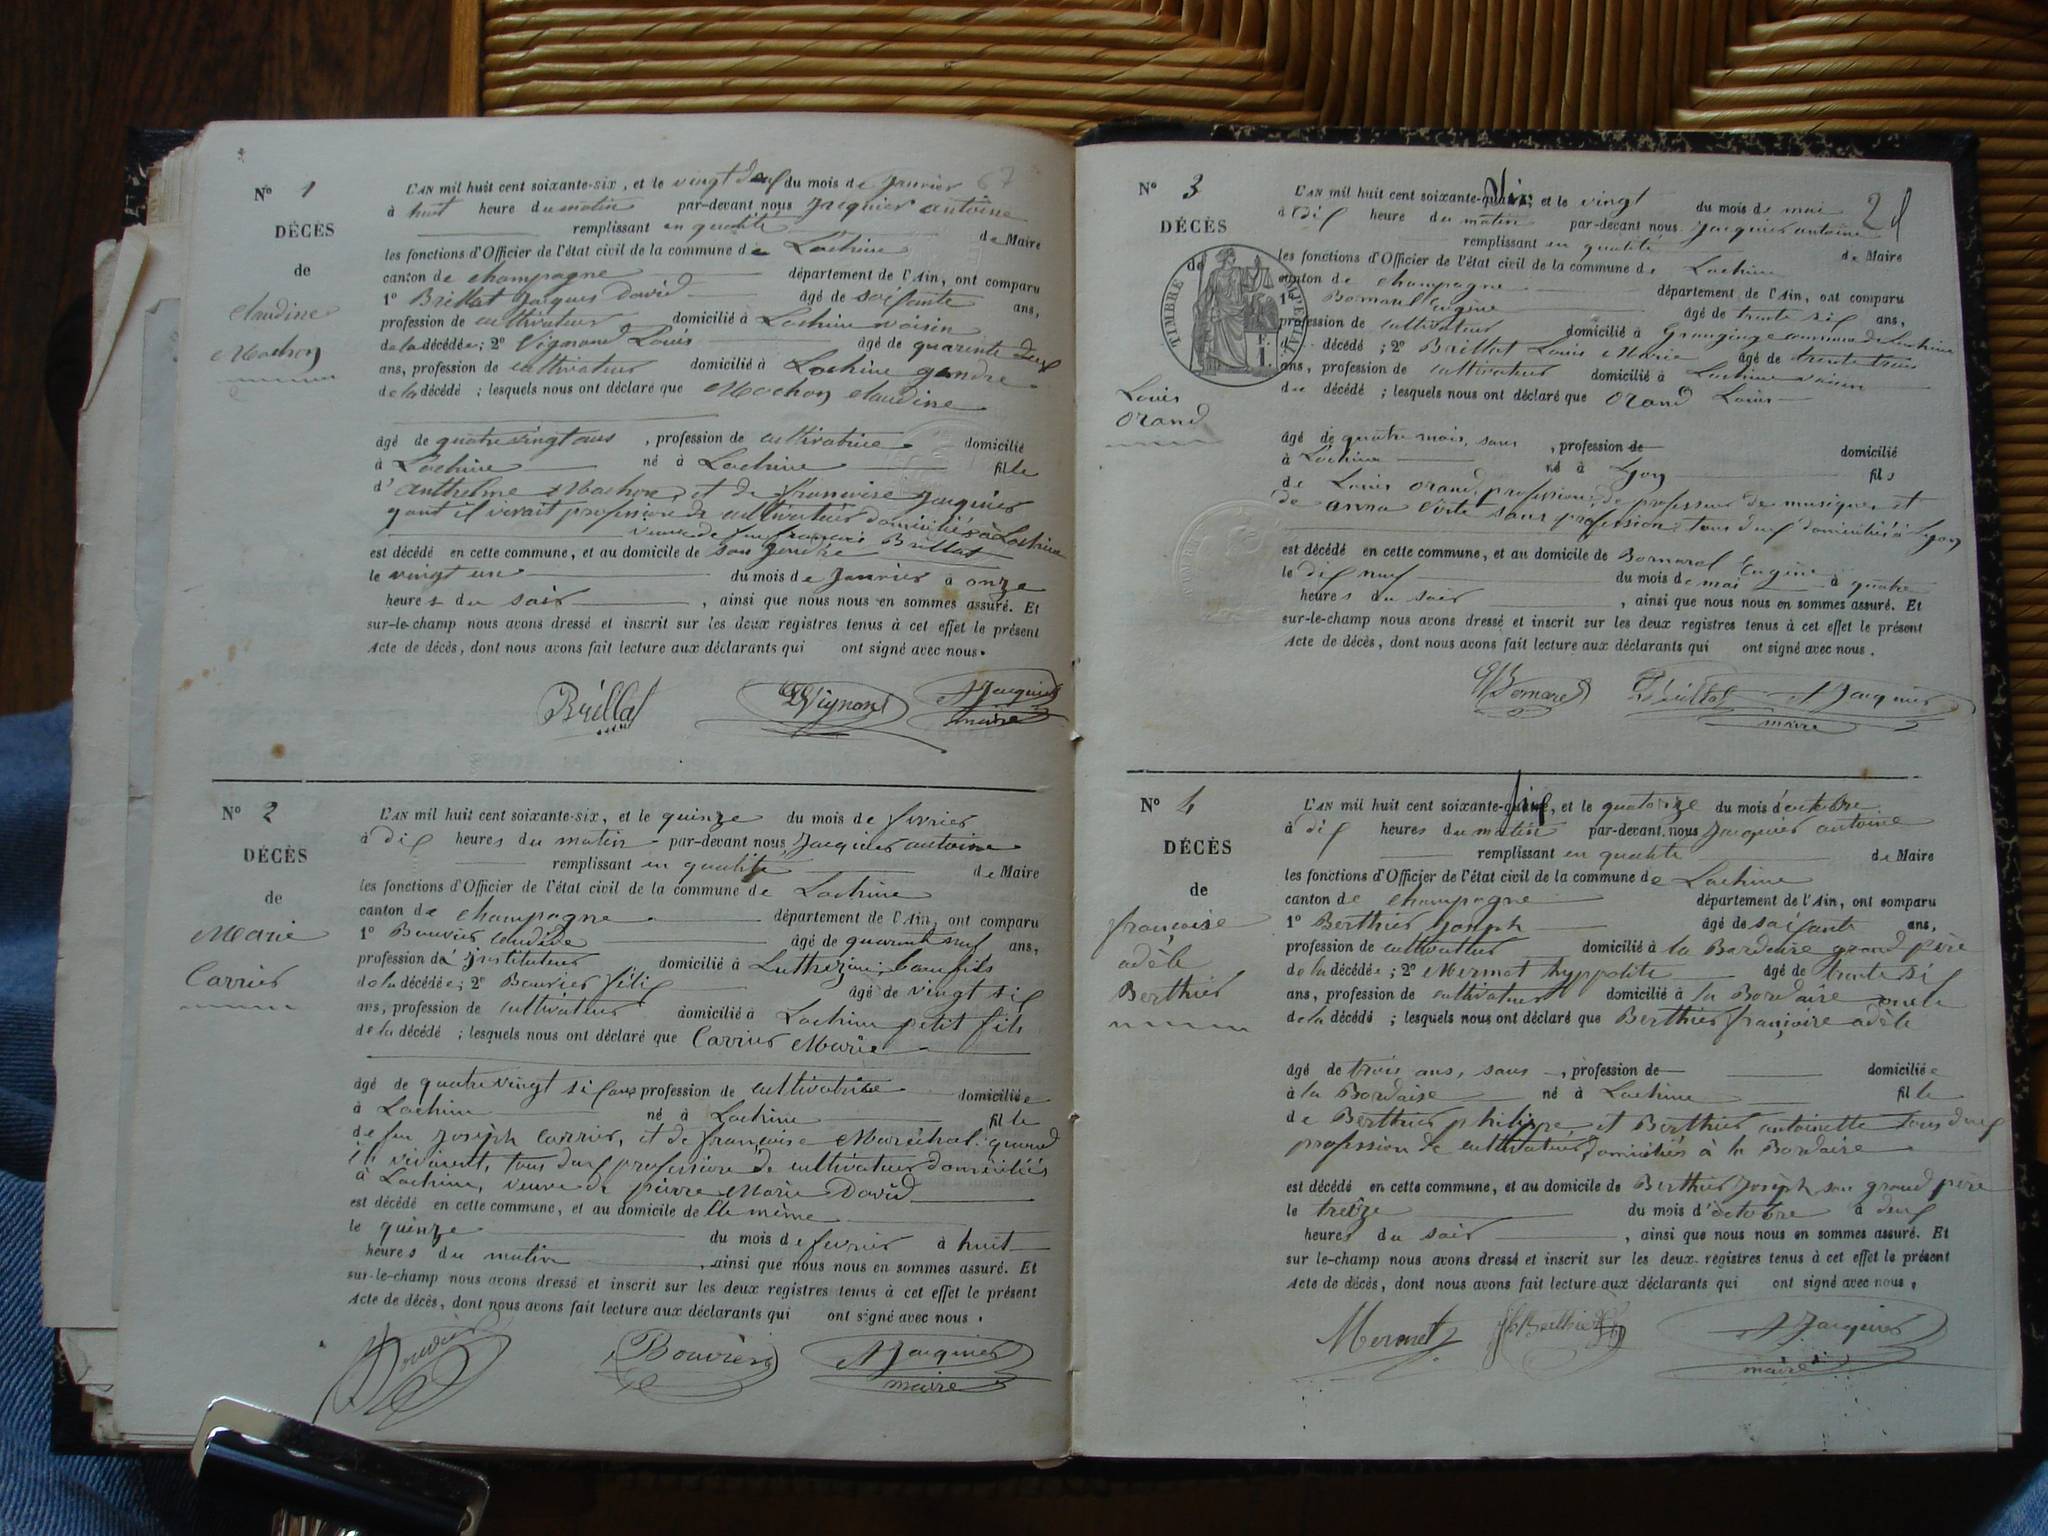 N° 1
DÉCÈS
de
Claudine
Mochon
L'AN mil huit cent soixante-six, et le vingt deux du mois de Janvier 67
à huit heure du matin par-devant nous Jacquier antoine
remplissant en qualité de Maire
les fonctions d'Officier de l'état civil de la commune de Lochieu
canton de champagne département de l'Ain, ont comparu
1° Brillat Jacques David âgé de soixante ans,
profession de cultivateur domicilié à Lochieu voisin
de la décédée; 2° Vignond Louis âgé de quarente deux
ans, profession de cultivateur domicilié à Lochieu gendre
de la décédé ; lesquels nous ont déclaré que Mochon claudine
âgé de quatre vingt ans , profession de cultivatrice domicilié
à Lochieu né à Lochieu fille
d'anthelme Mochon, et de françoise Jacquier
quant il vivait profession de cultivateur domiciliés à Lochieu
veuve de feu françois Brillat
est décédé en cette commune, et au domicile de son gendre
le vingt un du mois de Janvier à onze
heures du soir , ainsi que nous nous en sommes assuré. Et
sur-le-champ nous avons dressé et inscrit sur les deux registres tenus à cet effet le présent
Acte de décès, dont nous avons fait lecture aux déclarants qui ont signé avec nous.
Brillat Vignond A Jacquier
maire
N° 2
DÉCÈS
de
Marie
Carrier
L'AN mil huit cent soixante-six, et le quinze du mois de fevrier
à dix heures du matin par-devant nous Jacquier antoine
remplissant en qualité de Maire
les fonctions d'Officier de l'état civil de la commune de Lochieu
canton de champagne département de l'Ain, ont comparu
1° Bouvier âgé de quarante neuf ans,
profession d'Instituteur domicilié à beaufils
de la décédée; 2° Bouvier félix âgé de vingt six
ans, profession de cultivateur domicilié à Lochieu petit fils
de la décédé ; lesquels nous ont déclaré que Carrier Marie
âgé de quatre vingt six ans profession de cultivatrice domiciliée
à Lochieu né à Lochieu fille
de feu Joseph Carrier, et de françoise Maréchal quand
ils vivaient, tous deux profession de cultivateur domiciliés
à Lochieu, veuve de pierre Marie David
est décédé en cette commune, et au domicile de elle même
le quinze du mois de fevrier à huit
heures du matin , ainsi que nous nous en sommes assuré. Et
sur-le-champ nous avons dressé et inscrit sur les deux registres tenus à cet effet le présent
Acte de décès, dont nous avons fait lecture aux déclarants qui ont signé avec nous.
Bouvier Bouvier A Jacquier
maire
N° 3
DÉCÈS
de
TIMBRE IMPÉRIAL
1 F.
Louis
Orand
L'AN mil huit cent soixante-six, et le vingt du mois de mai 2
à dix heure du matin par-devant nous Jacquier antoine
remplissant en qualité de Maire
les fonctions d'Officier de l'état civil de la commune de Lochieu
canton de champagne département de l'Ain, ont comparu
1° Bornarel Eugène âgé de trente six ans,
profession de cultivateur domicilié à commune de Lochieu
du décédé ; 2° Brillat Louis Marie âgé de trente trois
ans, profession de cultivateur domicilié à Lochieu voisin
du décédé ; lesquels nous ont déclaré que Orand Louis
âgé de quatre mois, sans , profession de domicilié
à Lochieu né à Lyon fils
de Louis Orand, profession de professeur de musique, et
de anna Côte sans profession, tous deux domiciliés à Lyon
est décédé en cette commune, et au domicile de Bornarel Eugène
le dix neuf du mois de mai à quatre
heures du soir , ainsi que nous nous en sommes assuré. Et
sur-le-champ nous avons dressé et inscrit sur les deux registres tenus à cet effet le présent
Acte de décès, dont nous avons fait lecture aux déclarants qui ont signé avec nous.
Bornarel Brillat A Jacquier
maire
N° 4
DÉCÈS
de
françoise
adèle
Berthier
L'AN mil huit cent soixante-six, et le quatorze du mois d'octobre
à dix heures du matin par-devant nous Jacquier antoine
remplissant en qualité de Maire
les fonctions d'Officier de l'état civil de la commune de Lochieu
canton de champagne département de l'Ain, ont comparu
1° Berthier Joseph âgé de soixante ans,
profession de cultivateur domicilié à la Bordaire grand père
de la décédée; 2° Mermet hyppolite âgé de trente six
ans, profession de cultivateur domicilié à la Bordaire oncle
de la décédé ; lesquels nous ont déclaré que Berthier françoise adèle
âgé de trois ans, sans , profession de domiciliée
à la Bordaire né à Lochieu fille
de Berthier philippe, et Berthier antoinette tous deux
profession de cultivateur, domiciliés à la Bordaire
est décédé en cette commune, et au domicile de Berthier Joseph son grand père
le treize du mois d'octobre à deux
heures du soir , ainsi que nous nous en sommes assuré. Et
sur-le-champ nous avons dressé et inscrit sur les deux registres tenus à cet effet le présent
Acte de décès, dont nous avons fait lecture aux déclarants qui ont signé avec nous.
Mermet Berthier A Jacquier
maire